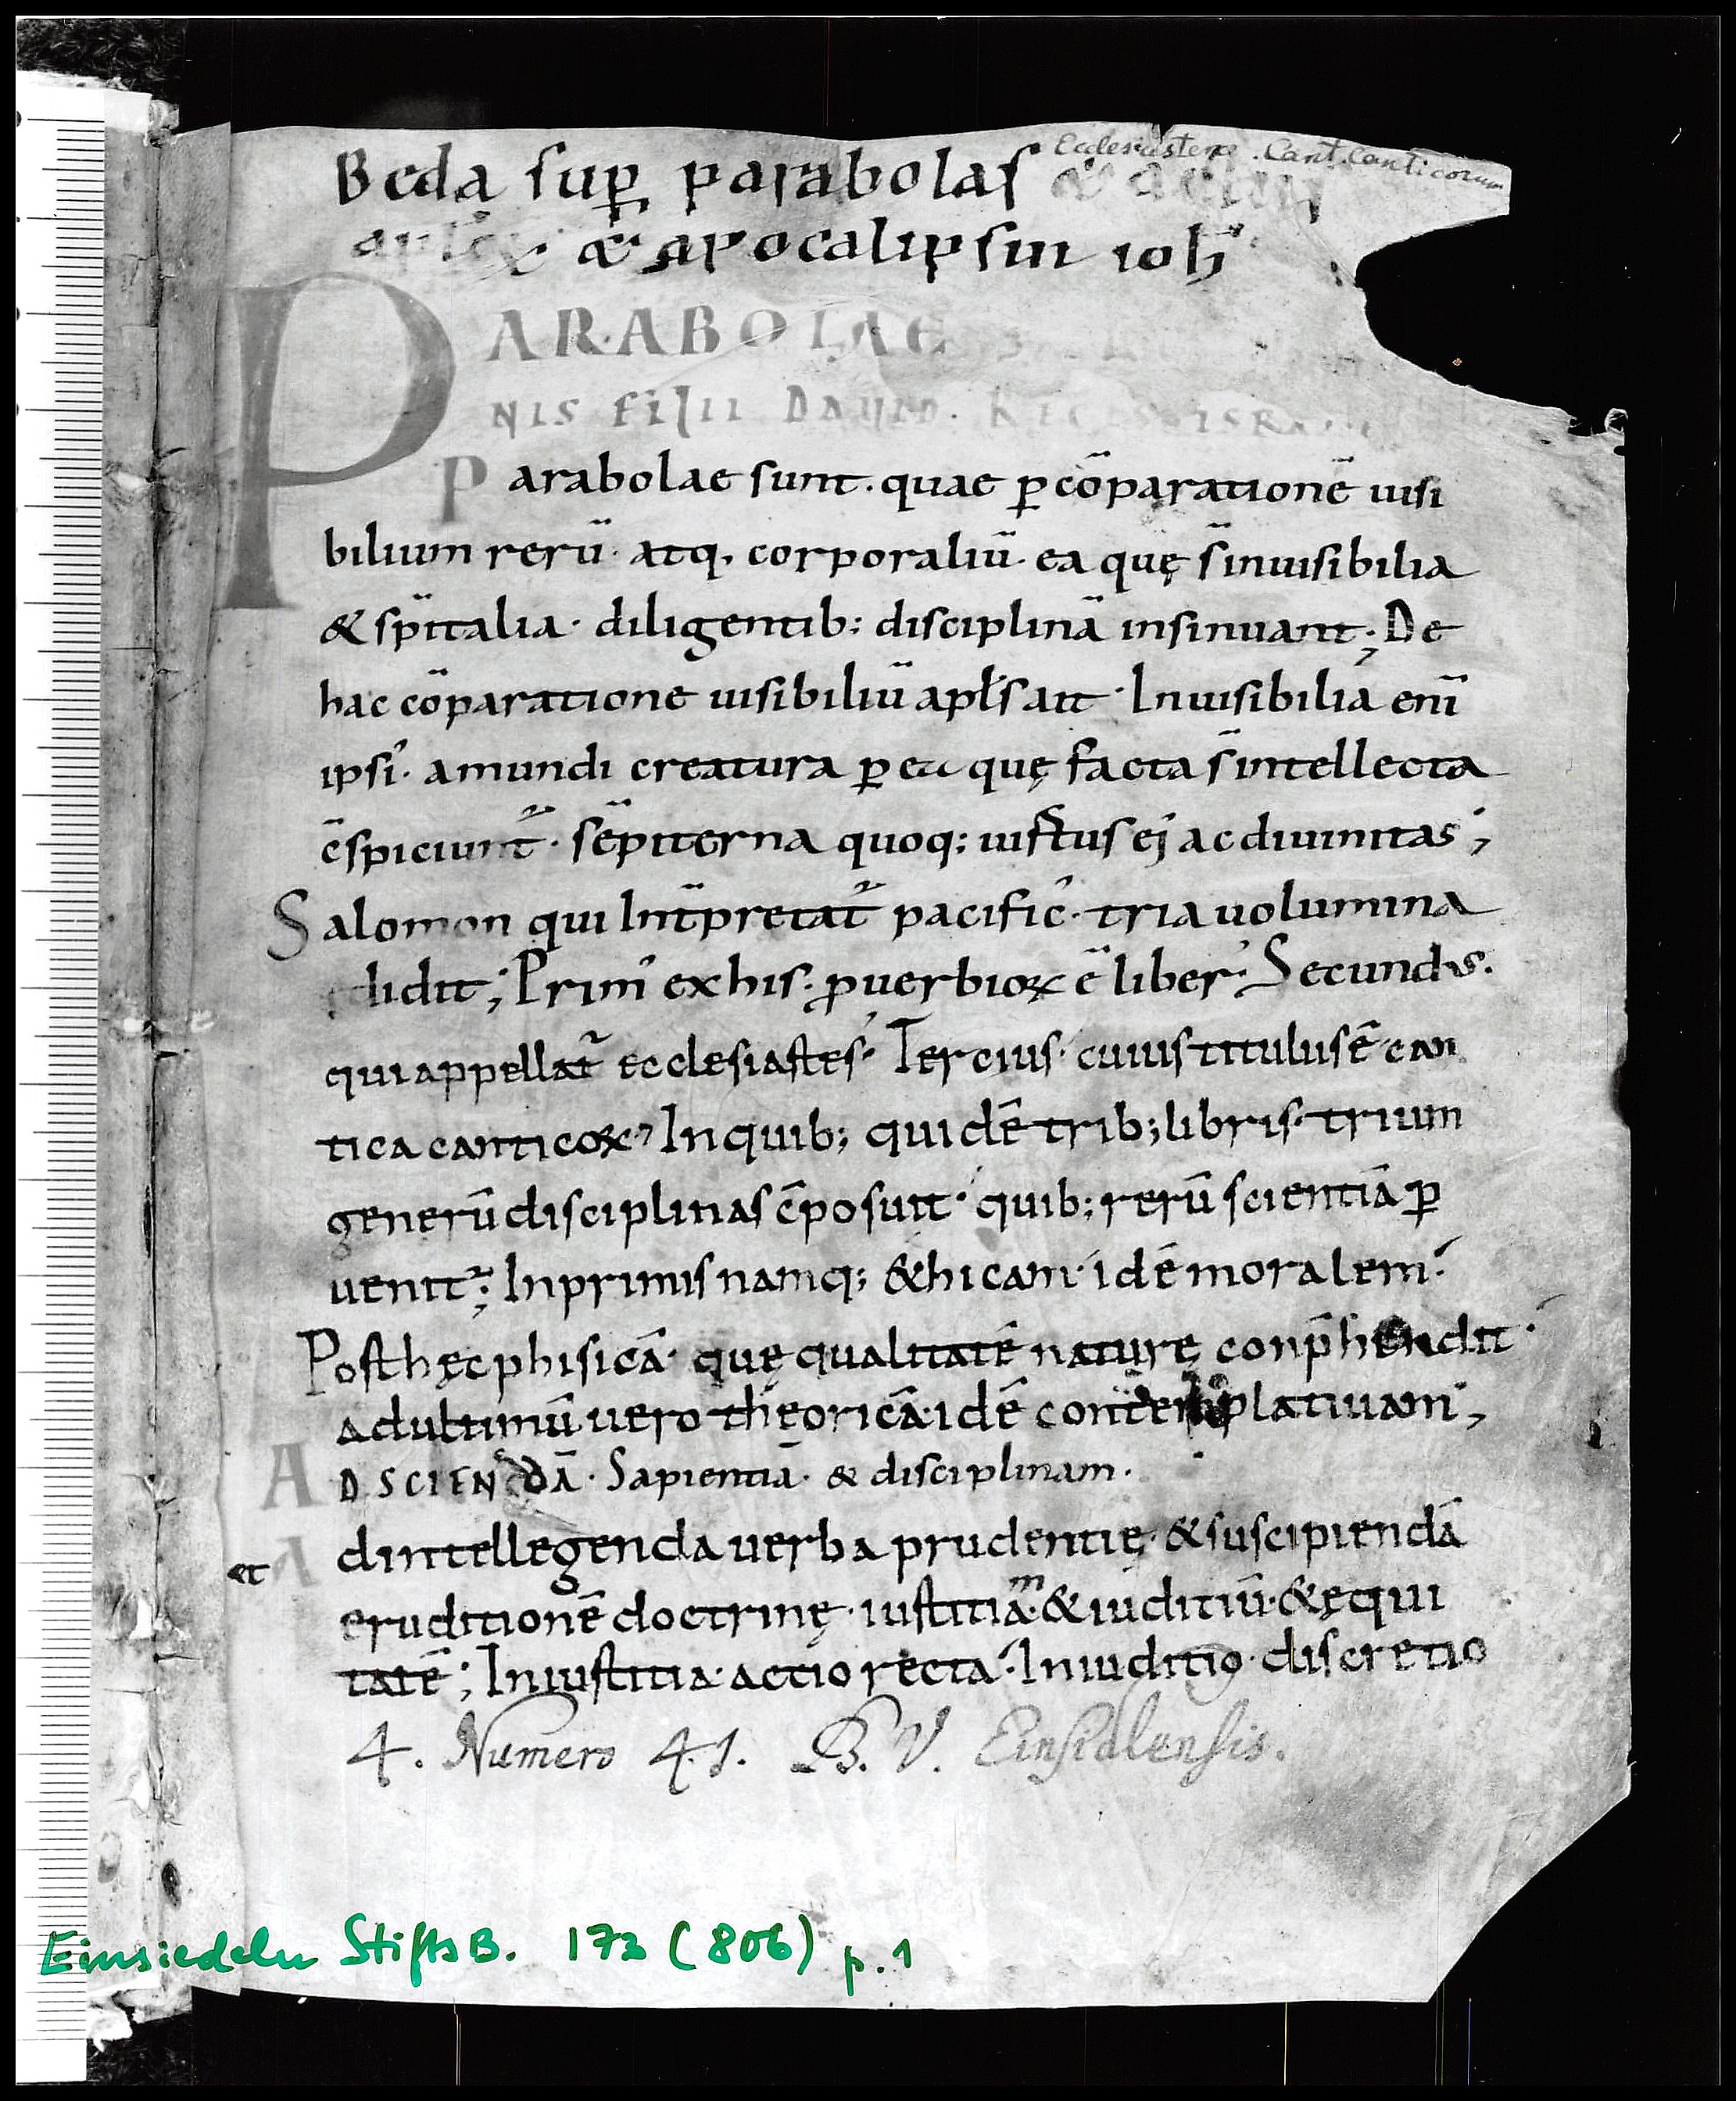 Ecclesiasten . Cant. Canticorum
Beda sup̲ parabolaſ &
& apocalipſin ioh̅
PARABOLAE
NIS FILII DAUID. REGIS ISRA
Parabolae sunt. quae p̲ cōparationē uisi
bilium rerū· atq, corporaliū· ea quę s̄ inuisibilia
& sp̄italia· diligentib; disciplinā insinuant; De
hac cōparatione uisibiliū apl̄s ait· Inuisibilia eni̅
ipsi᾽· a mundi creatura p̲ ea quę facta s̄ intellecta
c̄spiciunt̄᾽· sēpiterna quoq; uirtus ej ac diuinitas;
Salomon qui int̄pretat̄᾽ pacific᾽· tria uolumina
didit; Prim᾽ ex his· ꝓuerbioꝝ ē liber· Secundus.
qui appellat̄ ecclesiastes· Tercius· cuius titulus ē can
tica canticoꝝ· In quib; quidē trib; libris· trium
generū disciplinas c̄posuit· quib; rerū scientiā p̲
uenit᾽; In primis namq; &hicam· idē moralem·
Post hęc phisicā· quę qualitatē naturę conp̄hendit·
ad ultimū uero theoricā· idē contemplatiuam;
AD SCIENDĀ· Sapientiā· & disciplinam.
et Ad intellegenda uerba prudentię· & suscipiendā
eruditionē doctrinę· iustitiam· & iuditiū· & ęqui
tatē; In iustitia· actio recta· In iuditio· discretio
4. Numero 41. B. V. Einsidlensis.
Einsiedeln StiftsB. 172 (806) p. 1